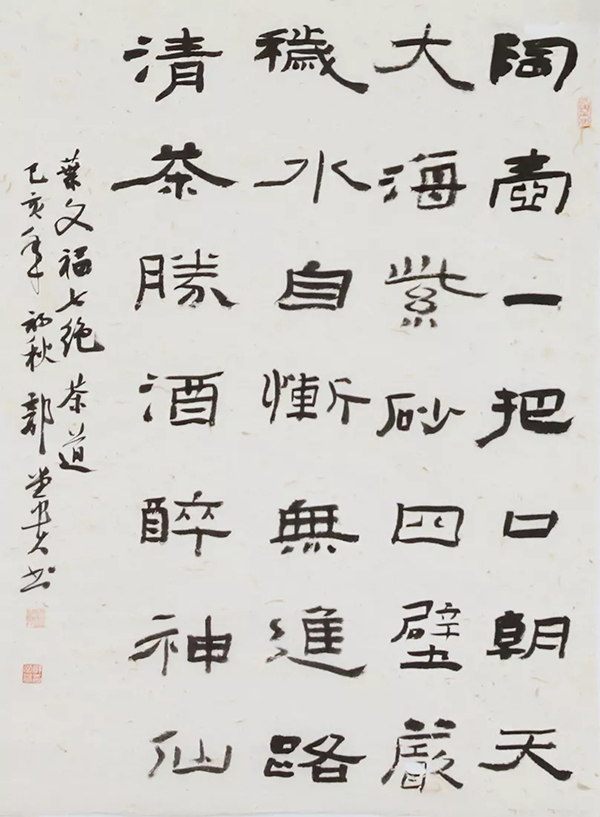 陶壺一把口朝天
大海紫砂四壁嚴
穢水自慚無進路
清茶勝酒醉神仙
葉文福七絕 茶道
己亥年初秋 郭